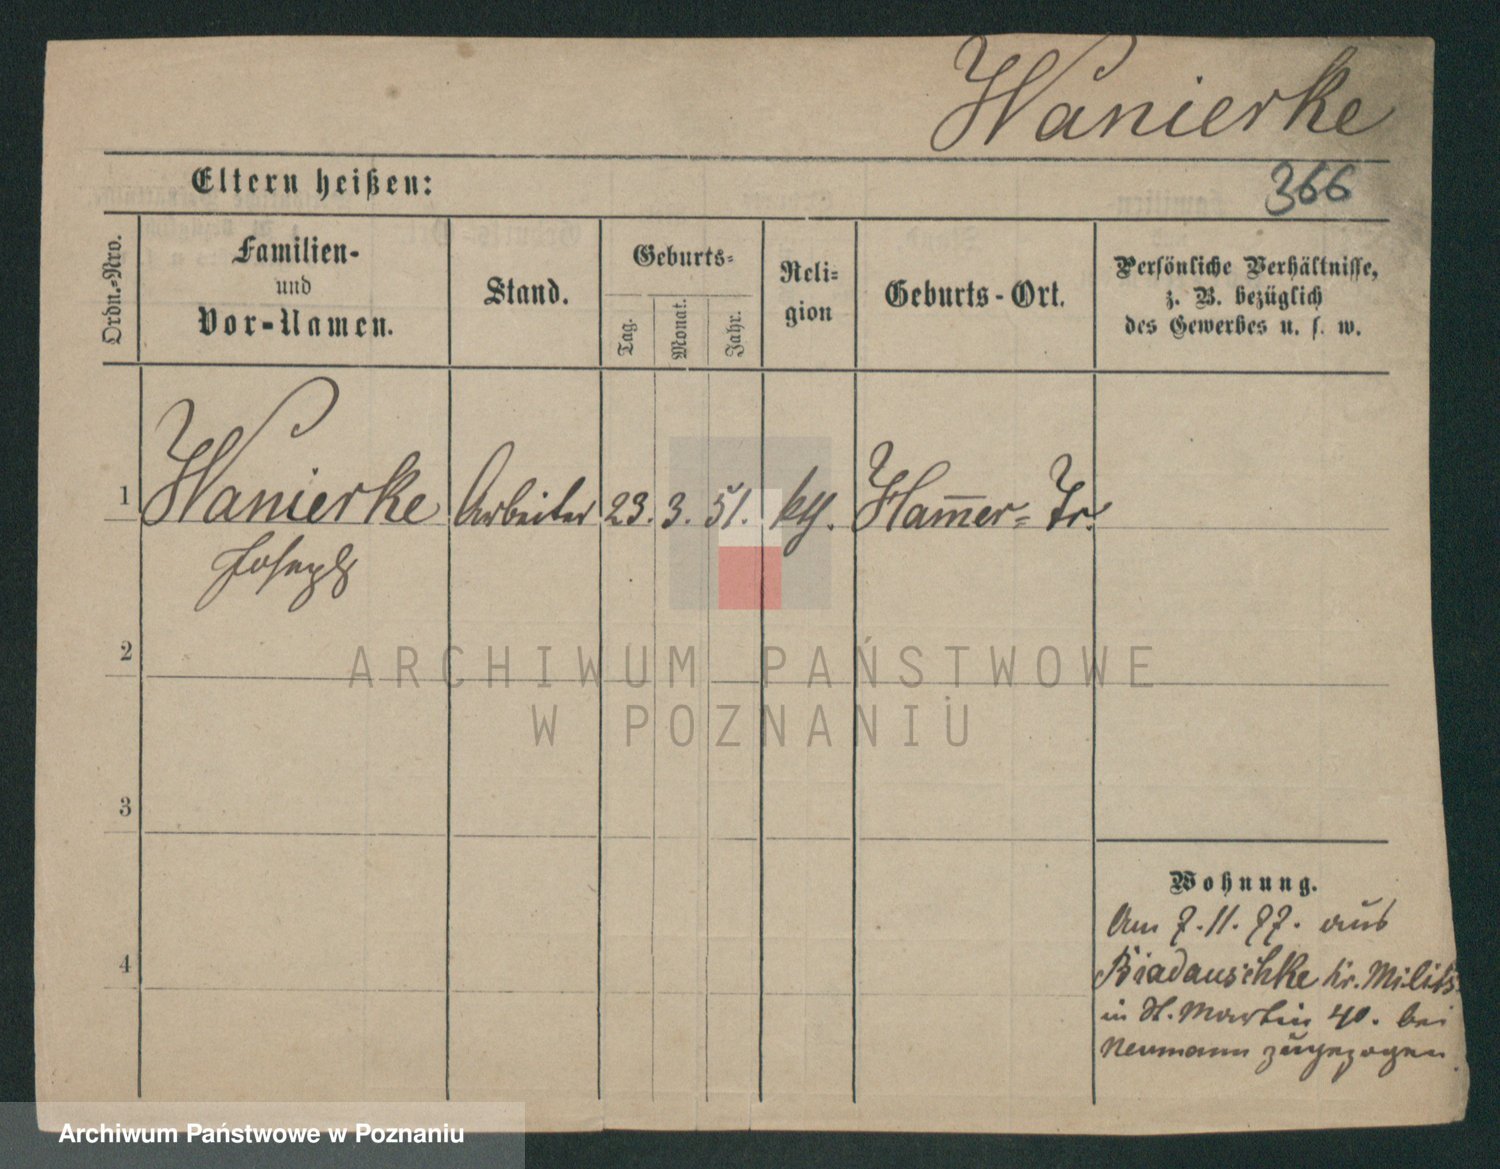 Wanierke
Eltern heißen:
366
Ordn.-Nro.
Familien-
und
Vor-Namen.
Stand.
Geburts-
Tag.
Monat.
Jahr.
Reli-
gion
Geburts-Ort.
Persönliche Verhältnisse,
z. B. bezüglich
des Gewerbes u. s. w.
1
Wanierke
Joseph
Arbeiter
23.
3.
51.
kth.
Ham̅er-
2
3
4
Wohnung.
Am 7.11.77. aus
Biadauschke Kr. Milits.
in St. Martin 40. bei
Neumann zugezogen.
ARCHIWUM PAŃSTWOWE
W POZNANIU
Archiwum Państwowe w Poznaniu